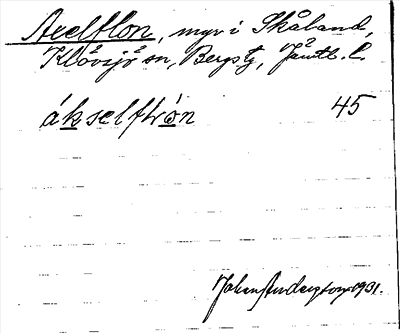 Axelflon, myr i Skåland,
Klövsjö sn, Bergs tg, Jämtl. l.
ákselflrón 45
Johan Anderzon 1931.